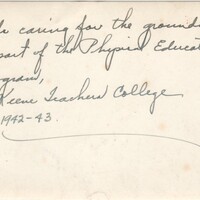 caring for the grounds
part of the Physical Educat
gram,
Keene Teachers College
1942-43.